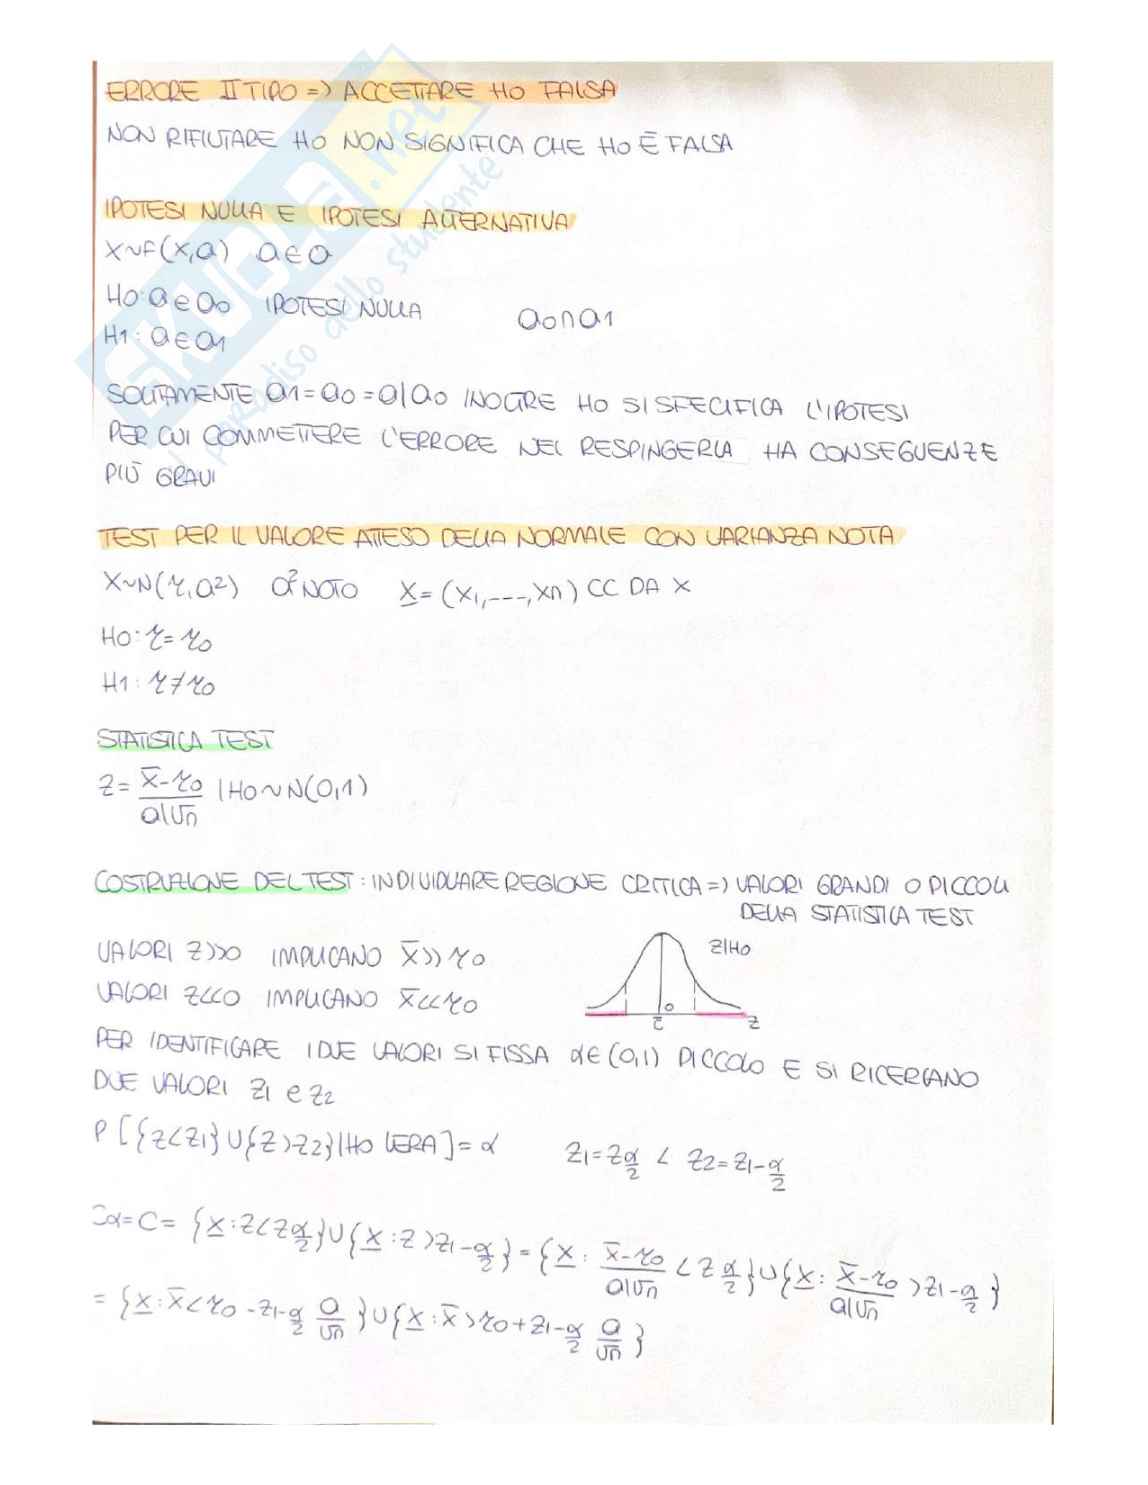 ERRORE II TIPO => ACCETTARE H0 FALSA
NON RIFIUTARE H0 NON SIGNIFICA CHE H0 È FALSA
IPOTESI NULLA E IPOTESI ALTERNATIVA
X~F(X,a) a∈a
H0: a∈a0 IPOTESI NULLA a0∩a1
H1: a∈a1
SOLITAMENTE a1=a0=a|a0 INOLTRE H0 SI SPECIFICA L'IPOTESI
PER CUI COMMETTERE L'ERRORE NEL RESPINGERLA HA CONSEGUENZE
PIÙ GRAVI
TEST PER IL VALORE ATTESO DELLA NORMALE CON VARIANZA NOTA
X~N(μ,σ²) σ² NOTO X=(X1,---,Xn) CC DA X
H0: μ=μ0
H1: μ≠μ0
STATISTICA TEST
Z= (x̄-μ0)/(σ/√n) |H0~N(0,1)
COSTRUZIONE DEL TEST: INDIVIDUARE REGIONE CRITICA => VALORI GRANDI O PICCOLI
DELLA STATISTICA TEST
VALORI Z>>0 IMPLICANO x̄>>μ0
Z|H0
VALORI Z<<0 IMPLICANO x̄<<μ0
0
z
PER IDENTIFICARE I DUE VALORI SI FISSA α∈(0,1) PICCOLO E SI RICERCANO
DUE VALORI Z1 e Z2
P[{Z<Z1}∪{Z>Z2}|H0 VERA]=α Z1=Zα/2 < Z2=Z1-α/2
Cα=C={X:Z<Zα/2}∪{X:Z>Z1-α/2}={X: (x̄-μ0)/(σ/√n) <Zα/2}∪{X: (x̄-μ0)/(σ/√n) >Z1-α/2}
={X:x̄<μ0-Z1-α/2 σ/√n}∪{X:x̄>μ0+Z1-α/2 σ/√n}
SKUOLA.net
il paradiso dello studente